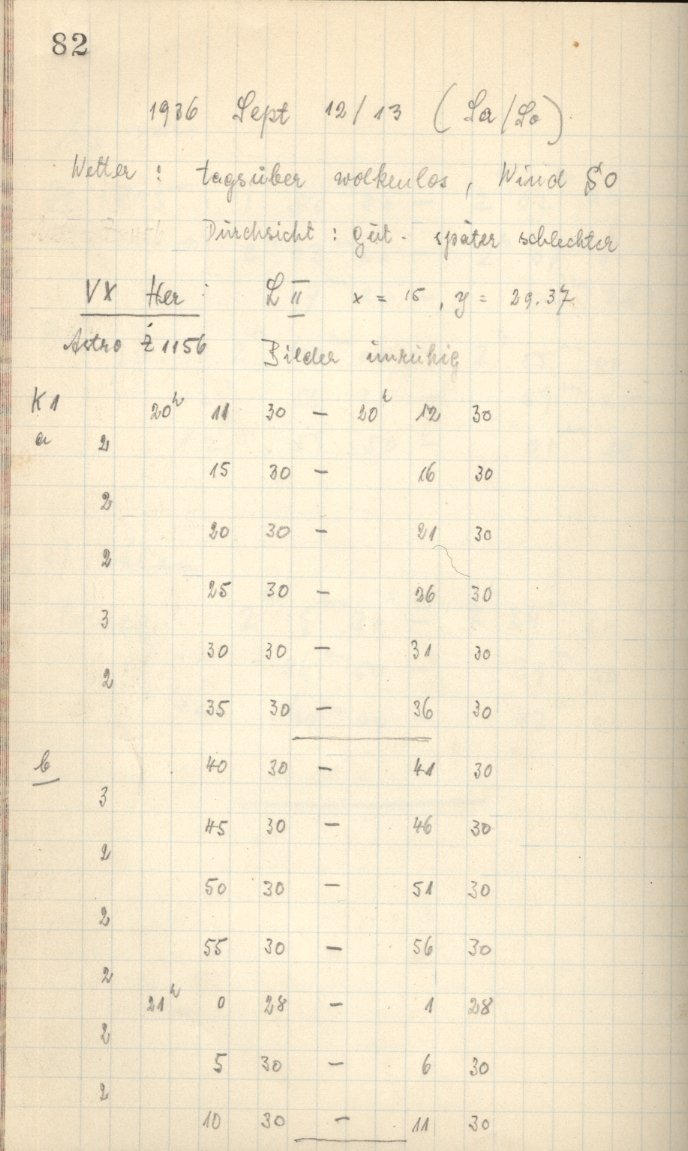 82
1936 Sept 12/13 (Sa/So)
Wetter: tagsüber wolkenlos, Wind SO
Durchsicht: gut - später schlechter
VX Her: L II x = 15, y = 29.37
Astro Z 1156 Bilder unruhig
K1 20h 11 30 — 20h 12 30
a 2
15 30 — 16 30
2
20 30 — 21 30
2
25 30 — 26 30
3
30 30 — 31 30
2
35 30 — 36 30
b 40 30 — 41 30
3
45 30 — 46 30
2
50 30 — 51 30
2
55 30 — 56 30
2
21h 0 28 — 1 28
2
5 30 — 6 30
2
10 30 — 11 30